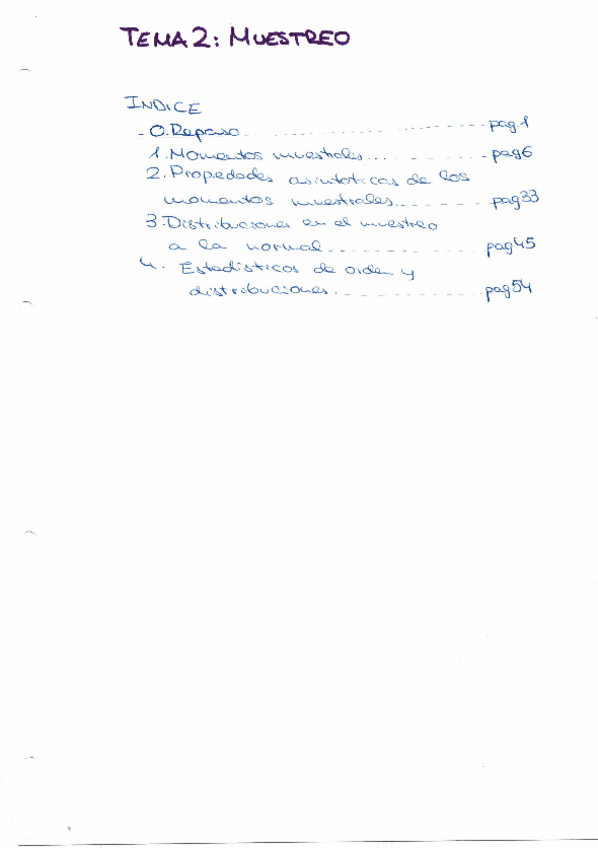 TEMA 2: MUESTREO
INDICE
- 0. Repaso ............ pag 1
1. Momentos muestrales ...... pag 6
2. Propedades asintoticas de los
momentos muestrales ...... pag 33
3. Distribuciones en el muestreo
a la normal ............ pag 45
4. Estadisticos de orden y
distribuciones ............ pag 54